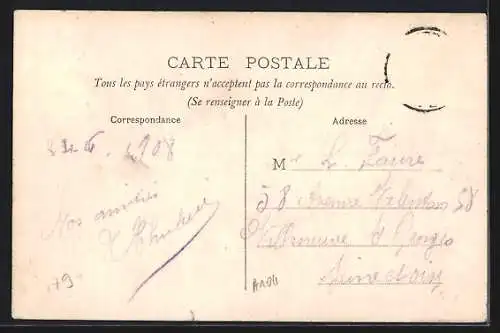 CARTE POSTALE
Tous les pays étrangers n'acceptent pas la correspondance au recto.
(Se renseigner à la Poste)
Correspondance
Adresse
1908
M r L. Faure
58 Avenue 58
Nos amitiés
Villeneuve St Georges
Seine et Oise